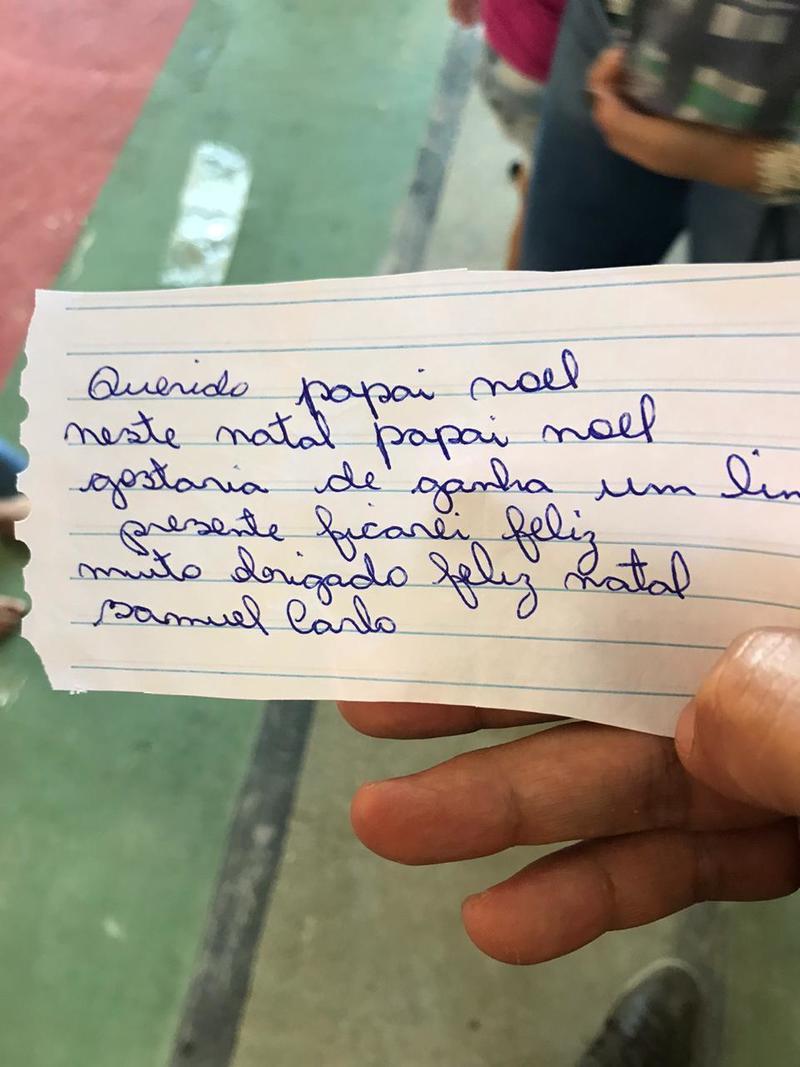 Querido papai noel
neste natal papai noel
gostaria de ganha um lin
presente ficarei feliz
muito obrigado feliz natal
Samuel Carlo